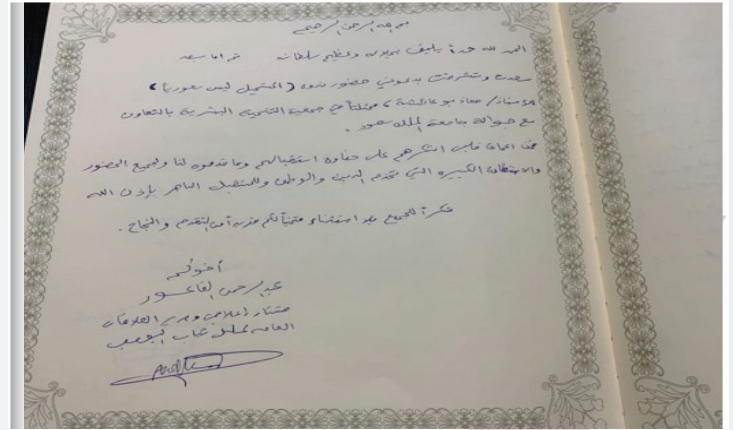 بسم الله الرحمن الرحيم
الحمد لله حمداً يليق بجلاله وعظيم سلطانه ثم اما بعد
سعدت وتشرفت بدعوتي حضور ندوة (المستحيل ليس سعودياً)
للاستاذ/ معاذ ممثلاً في جمعية التنمية البشرية بالتعاون
مع جوالة جامعة الملك سعود.
من اعماق قلبي اشكرهم على حفاوة استقبالهم وما قدموه لنا ولجميع الحضور
والاستفادة الكبيرة التي تخدم الدين والوطن والمستقبل الباهر بإذن الله
شكراً للجميع بلا استثناء متمنياً لكم مزيداً من التقدم والنجاح.
أخوكم
عبدالرحمن
مستشار إعلامي ومدير العلاقات
العامة شباب